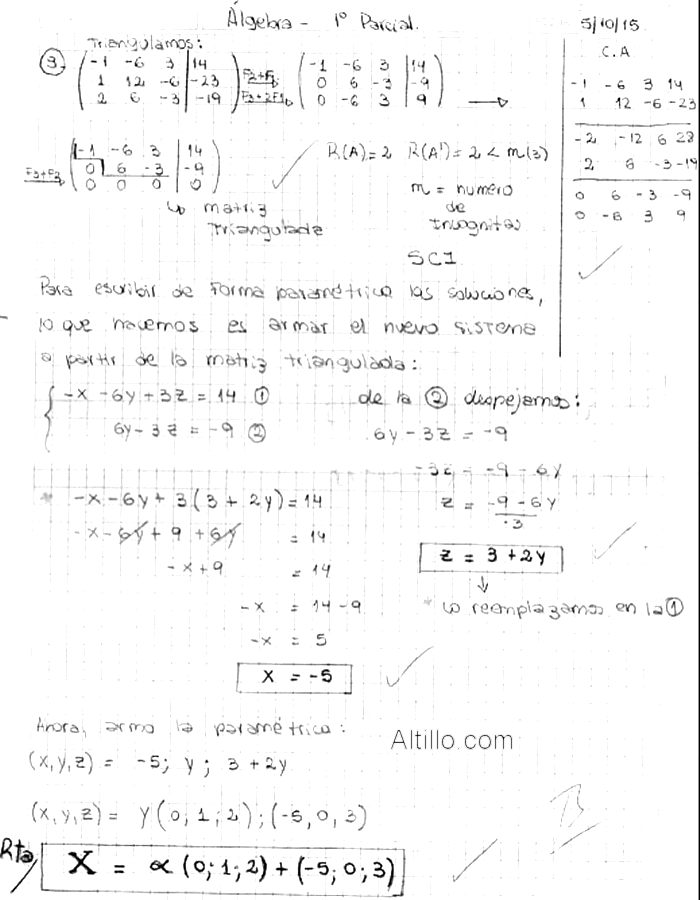 Álgebra - 1º Parcial.
5/10/15
Triangulamos:
C.A
3.
-1 -6 3 | 14
1 12 -6 | -23
2 6 -3 | -19
F2+F1
F3+2F1
-1 -6 3 | 14
0 6 -3 | -9
0 -6 3 | 9
-1 -6 3 14
1 12 -6 -23
-2 -12 6 28
2 6 -3 -19
0 6 -3 -9
0 -6 3 9
F3+F2
-1 -6 3 | 14
0 6 -3 | -9
0 0 0 | 0
R(A)=2 R(A')=2 < m(3)
m = numero
de
incognitas
↳ matriz
triangulada
SCI
Para escribir de forma paramétrica las soluciones,
lo que hacemos es armar el nuevo sistema
a partir de la matriz triangulada:
-x -6y +3z = 14 ①
6y -3z = -9 ②
de la ② despejamos:
6y - 3z = -9
-3z = -9 - 6y
z = -9 - 6y
-3
z = 3 + 2y
↳ reemplazamos en la ①
* -x - 6y + 3(3 + 2y) = 14
-x - 6y + 9 + 6y = 14
-x + 9 = 14
-x = 14 - 9
-x = 5
x = -5
Ahora, armo la paramétrica:
Altillo.com
(x,y,z) = -5; y; 3 + 2y
(x,y,z) = y(0;1;2);(-5,0,3)
B
Rta/ X = α (0;1;2) + (-5;0;3)